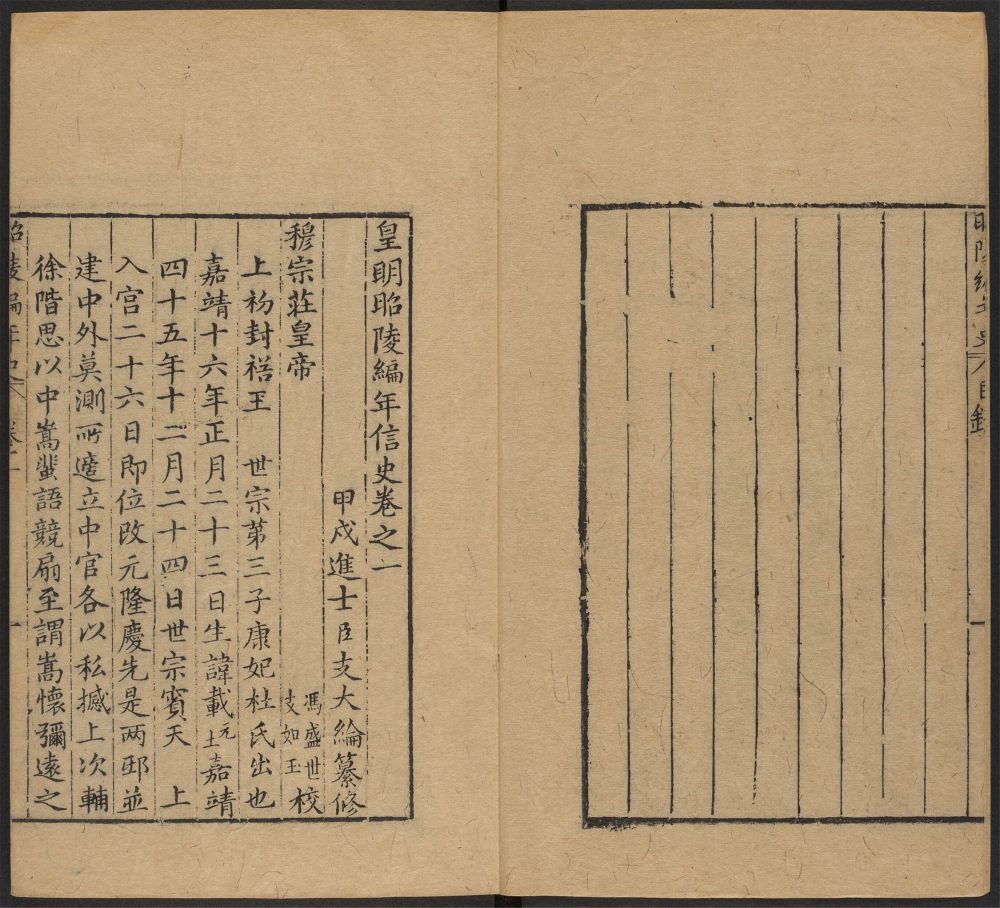 昭陵編年史 目錄
一
皇明昭陵編年信史卷之一
甲戍進士臣支大綸纂修
馮盛世
支如玉校
穆宗莊皇帝
上初封裕王 世宗第三子康妃杜氏出也
嘉靖十六年正月二十三日生諱載嘉靖
四十五年十二月二十四日世宗賓天 上
入宮二十六日即位改元隆慶先是两邸並
建中外莫測所適立中官各以私撼上次輔
徐階思以中嵩蜚語競扇至謂嵩懷彌遠之
昭陵編年史 卷一
一